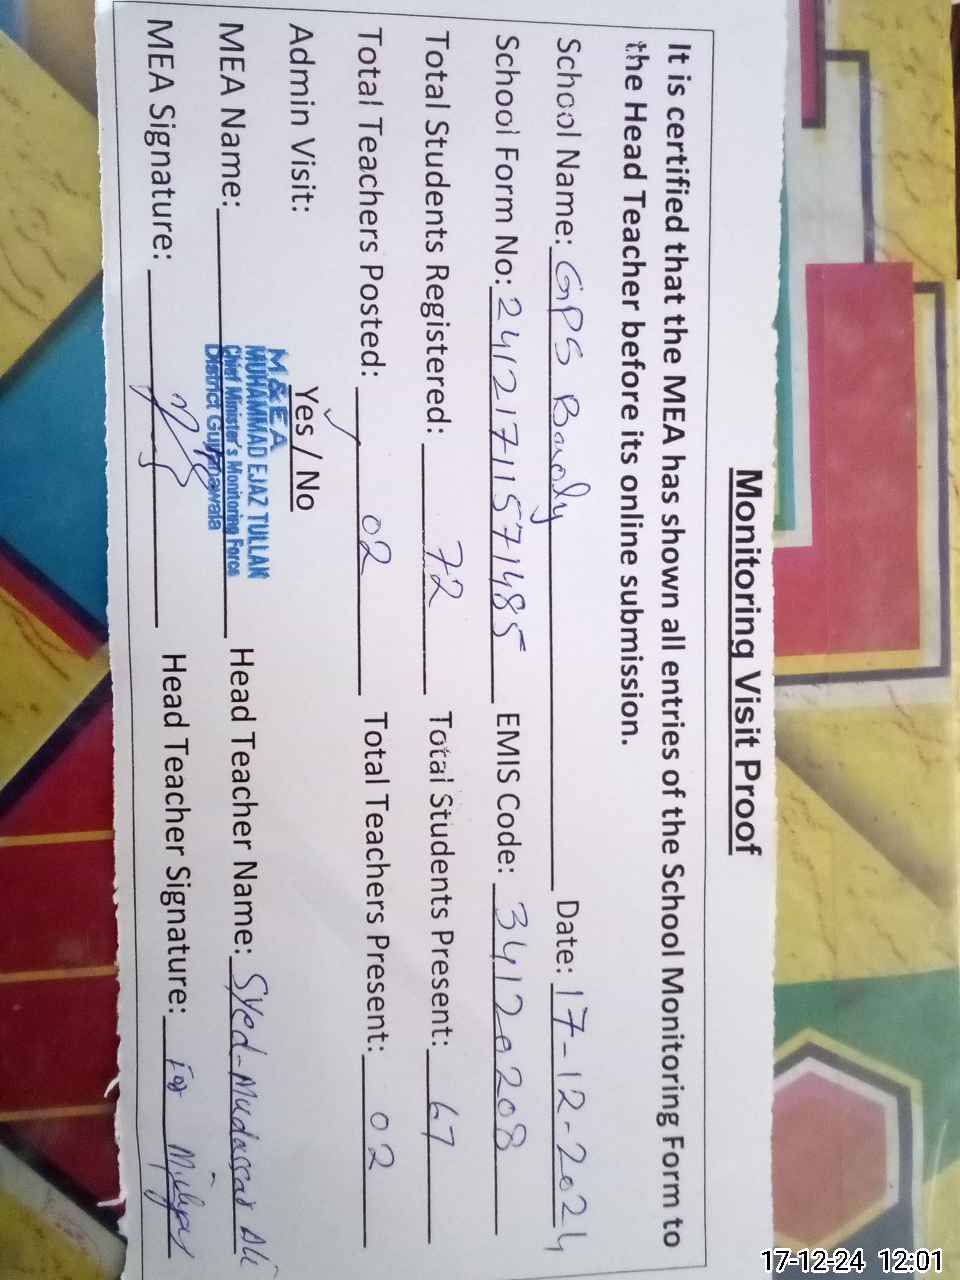 Monitoring Visit Proof
It is certified that the MEA has shown all entries of the School Monitoring Form to
the Head Teacher before its online submission.
School Name: GPS Date: 17-12-2024
School Form No: 24121711571485 EMIS Code: 34120208
Total Students Registered: 72 Total Students Present: 67
Total Teachers Posted: 02 Total Teachers Present: 02
Admin Visit: Yes / No
M&EA
MUHAMMAD EJAZ TULLAH
Chief Minister's Monitoring Force
District Gujranwala
MEA Name: Head Teacher Name: Syed-Mudassar Ali
MEA Signature: Head Teacher Signature: For
17-12-24 12:01